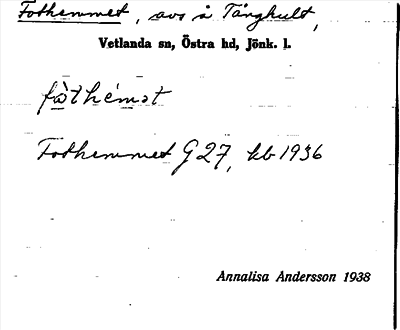 Fothemmet, avs å Tånghult,
Vetlanda sn, Östra hd, Jönk. l.
fὼthémət
Fothemmet G27, kb 1936
Annalisa Andersson 1938